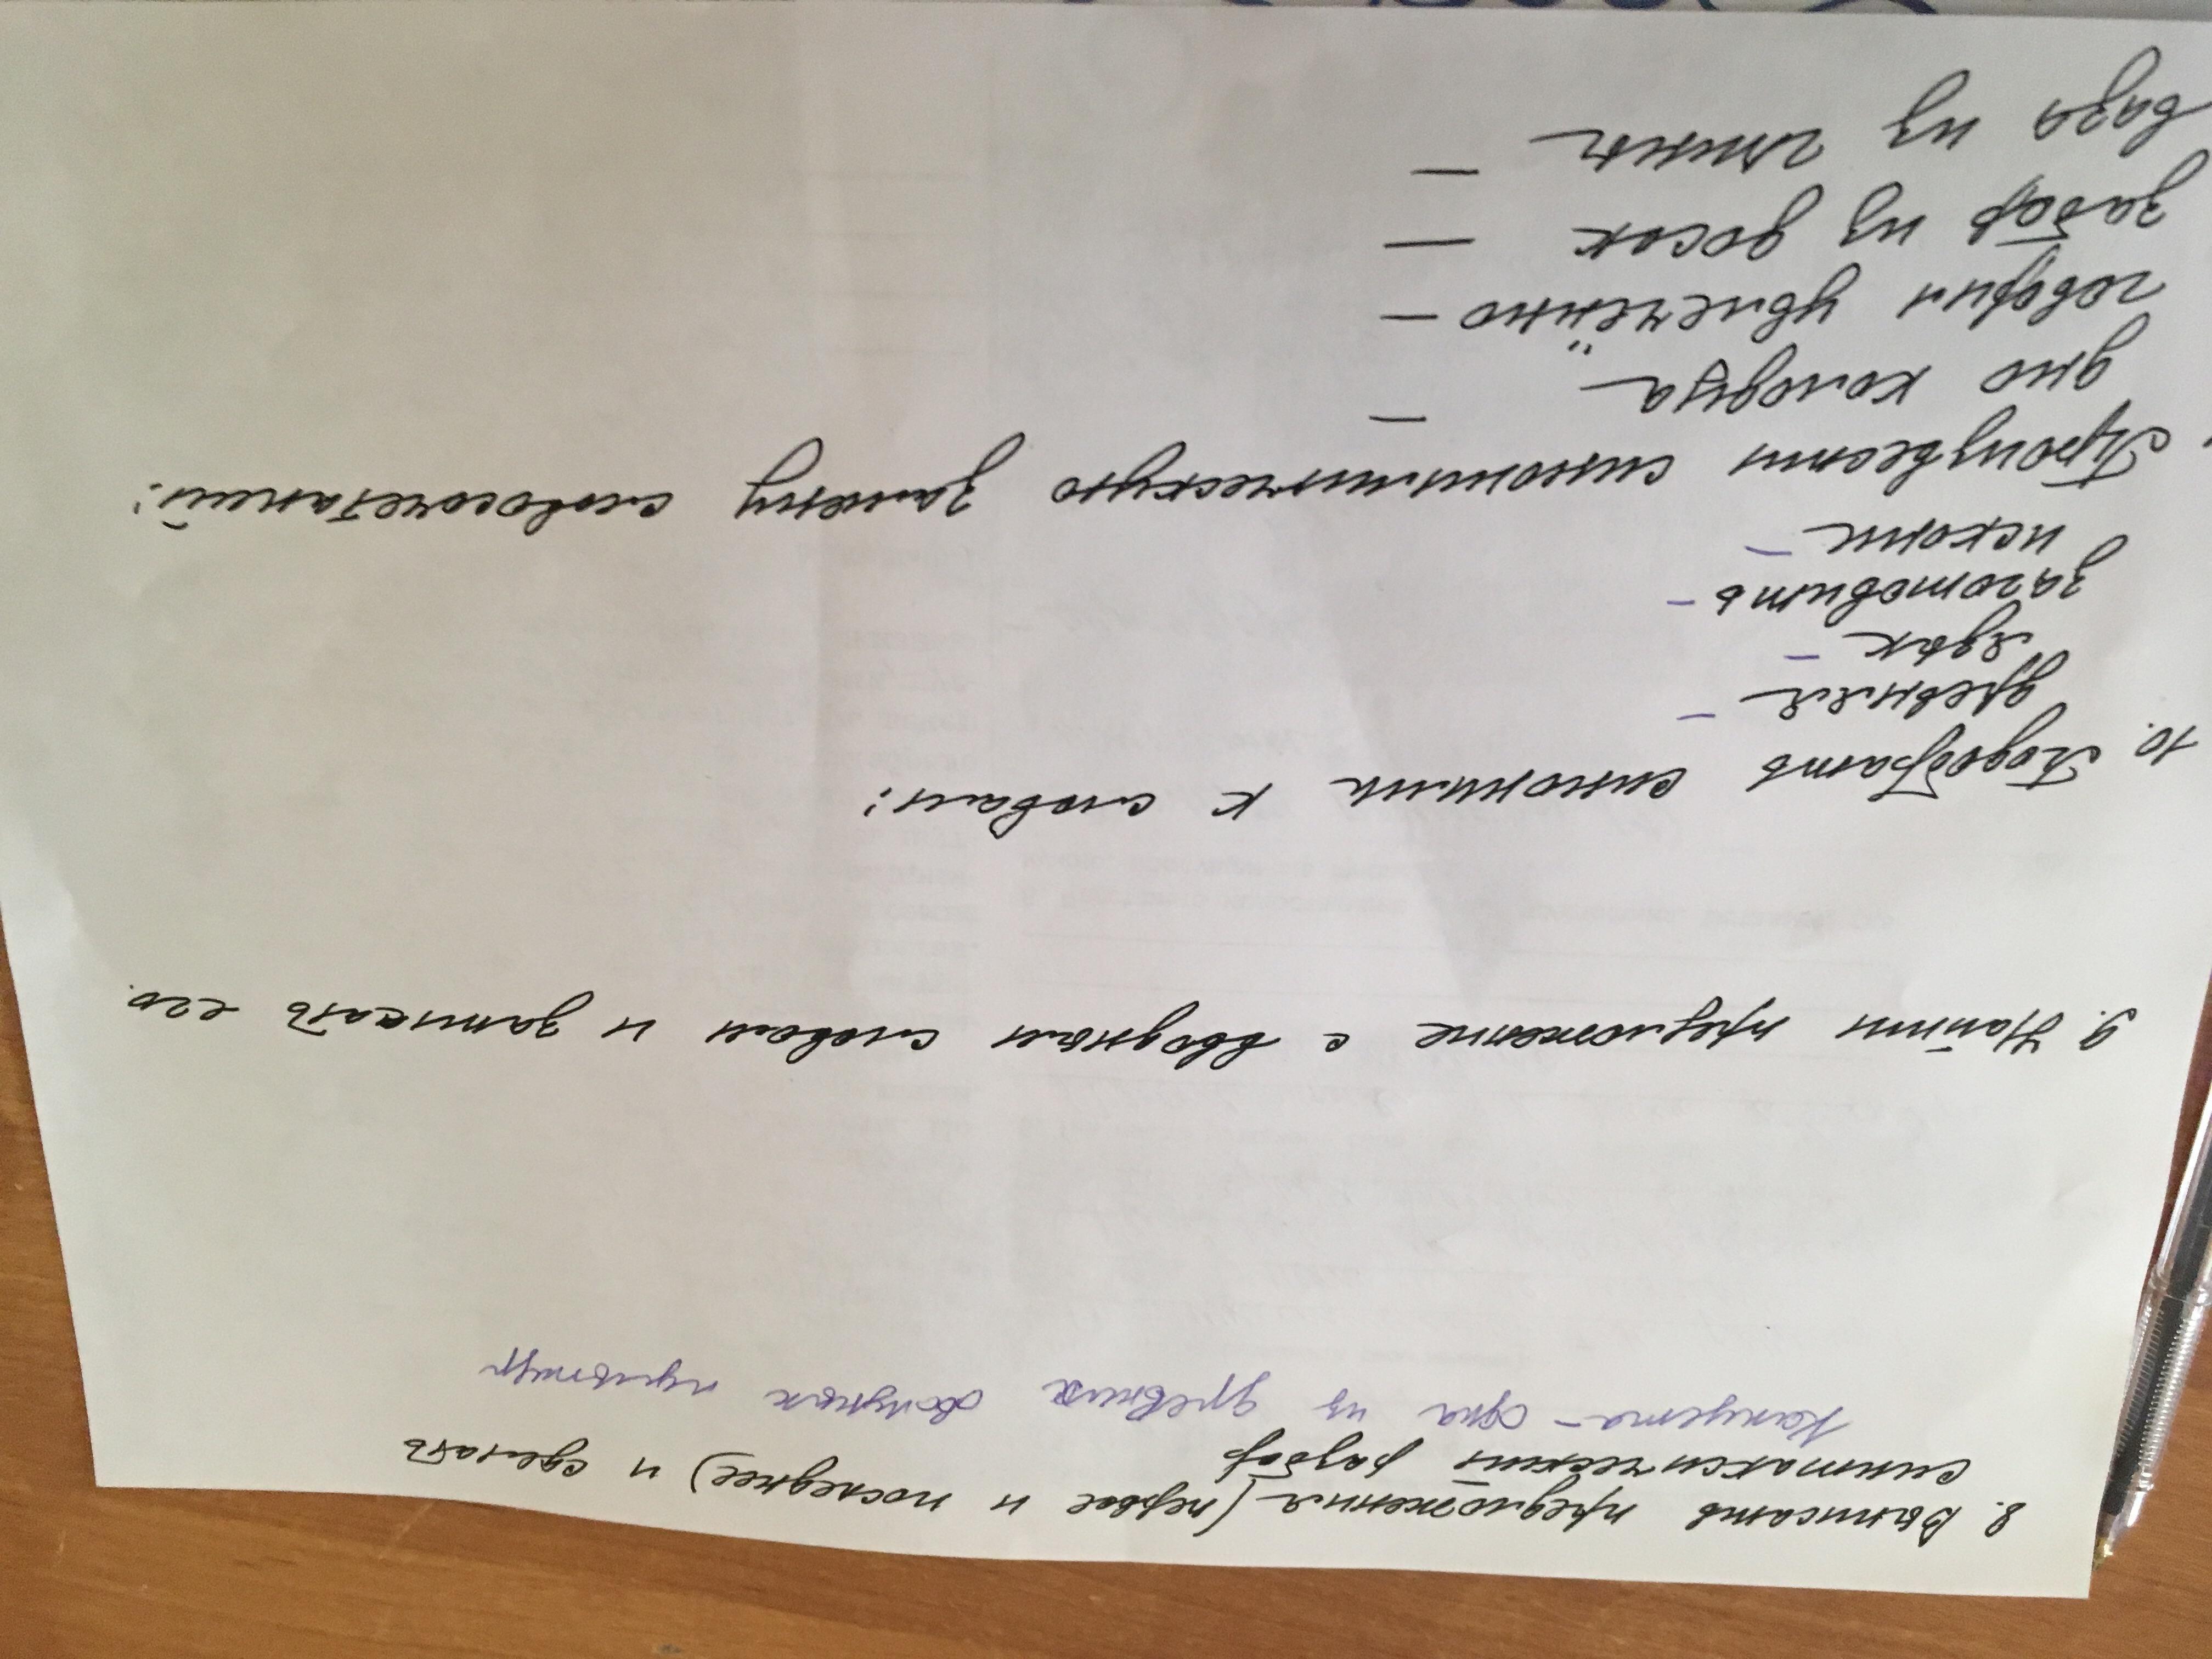 8. Выписать предложения (первое и последнее) и сделать
синтаксический разбор
Капуста – одна из древних овощных культур
9. Найти предложение с вводным словом и записать его.
10. Подобрать синонимы к словам:
древняя –
едок –
заготовить –
искони –
Произвести синонимическую замену словосочетаний:
дно колодца –
говорил увлечённо –
забор из досок –
ваза из глины –